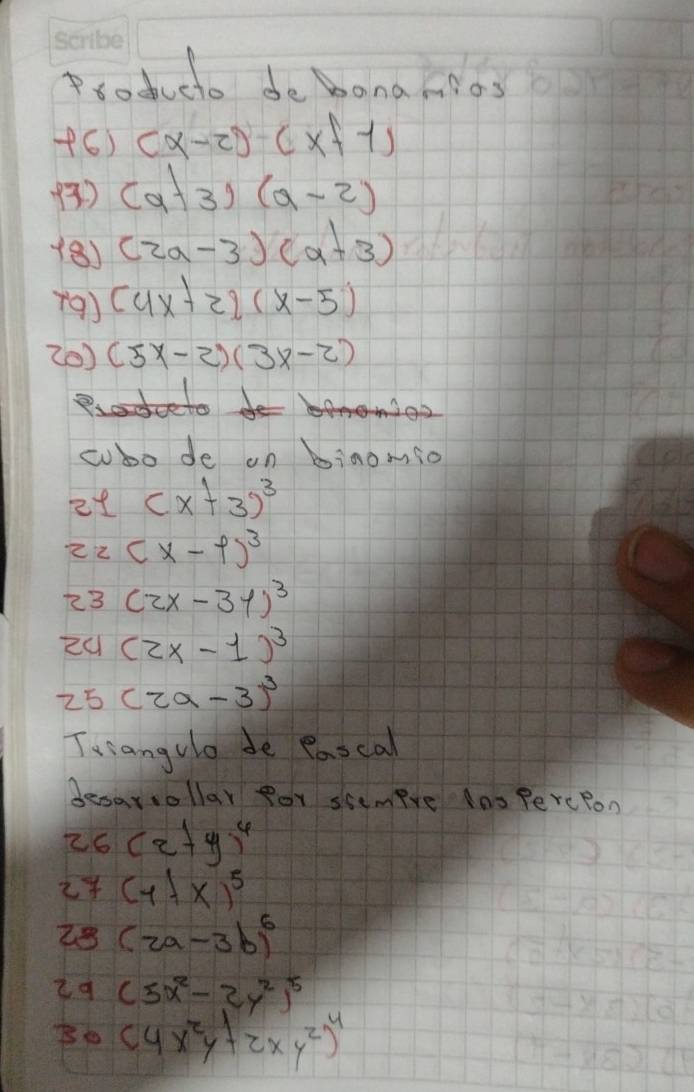 Scribe
Producto de bonamios
16) (x-2) (x+1)
17) (a+3) (a-2)
18) (2a-3)(a+3)
19) (4x+2)(x-5)
20) (5x-2)(3x-2)
Producto de binomios
cubo de un binomio
21 (x+3)³
22 (x-1)³
23 (2x-31)³
24 (2x-1)³
25 (2a-3)³
Triangulo de Pascal
desarrollar por siempre
26 (2+y)⁴
27 (1+x)⁵
28 (2a-3b)⁶
29 (5x²-2y²)⁵
30 (4x²y+2xy²)⁴